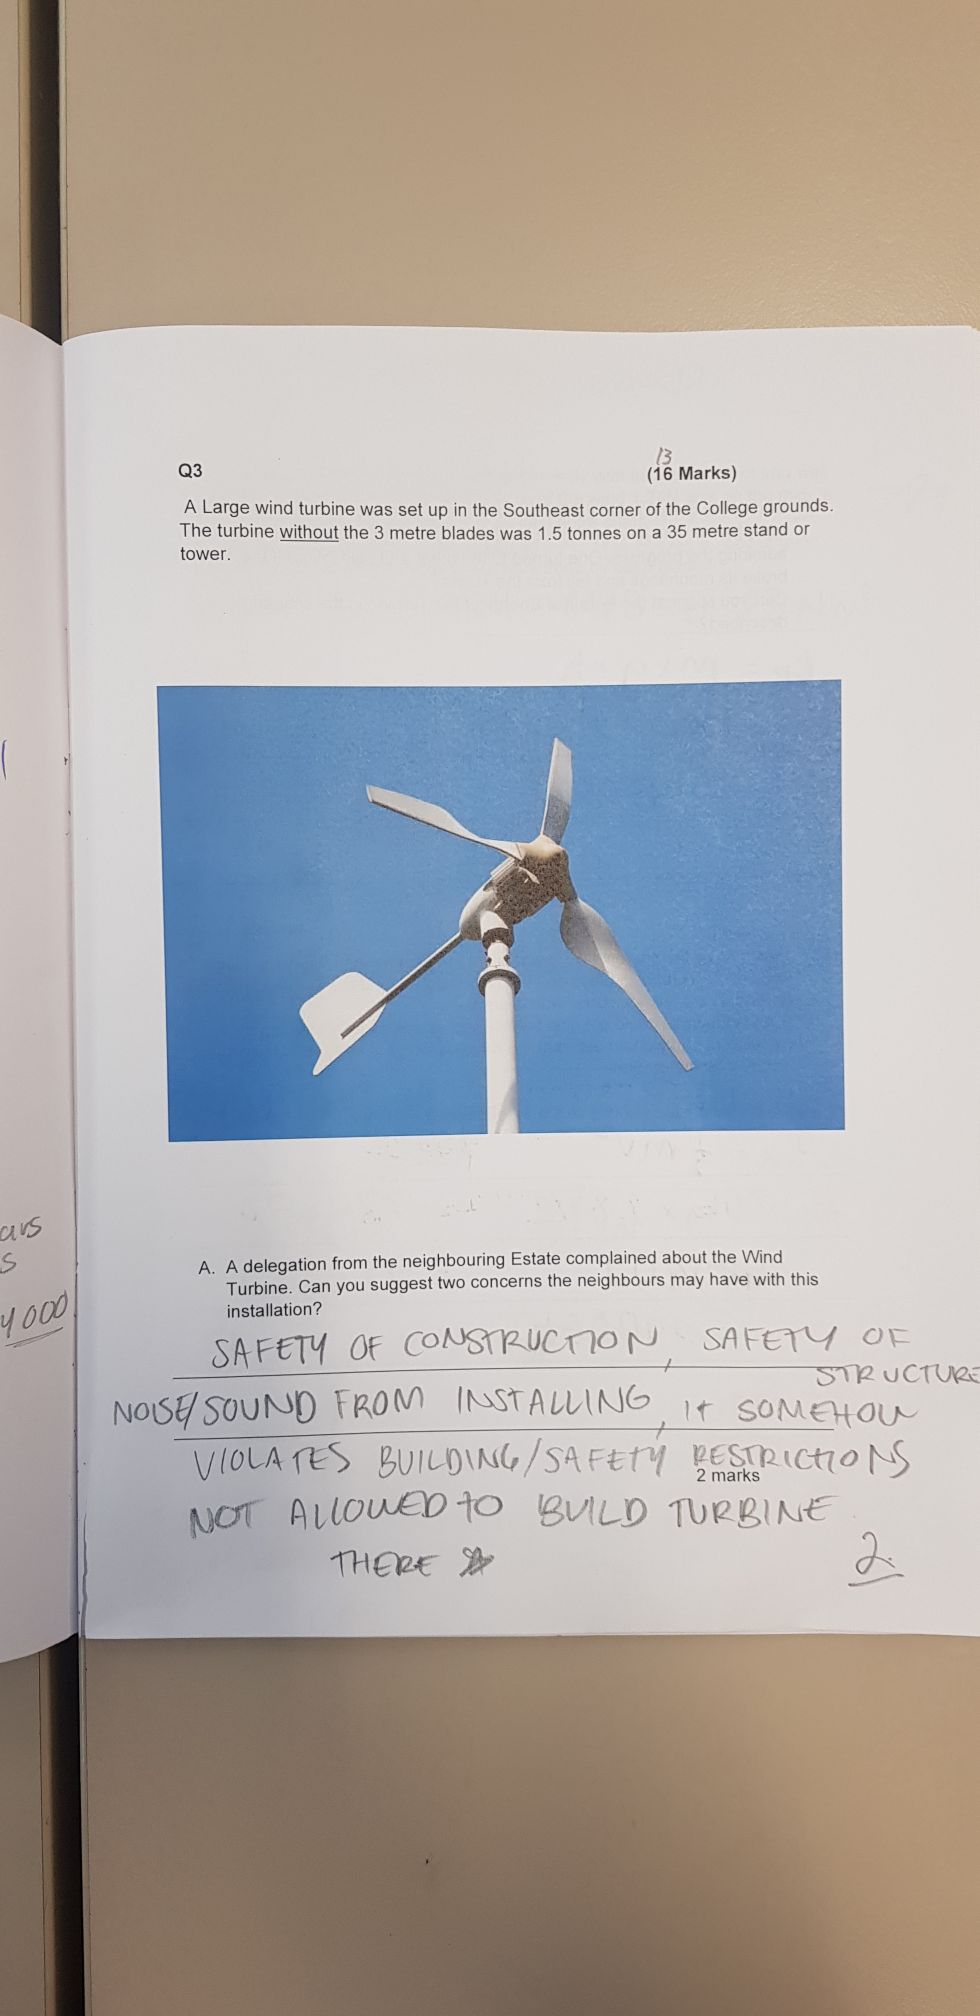 Q3
13
(16 Marks)
A Large wind turbine was set up in the Southeast corner of the College grounds.
The turbine without the 3 metre blades was 1.5 tonnes on a 35 metre stand or
tower.
A. A delegation from the neighbouring Estate complained about the Wind
Turbine. Can you suggest two concerns the neighbours may have with this
installation?
SAFETY OF CONSTRUCTION, SAFETY OF
STRUCTURE
NOISE/SOUND FROM INSTALLING, it SOMEHOW
VIOLATES BUILDING/SAFETY RESTRICTIONS
2 marks
NOT ALLOWED to BUILD TURBINE
THERE
2
4000